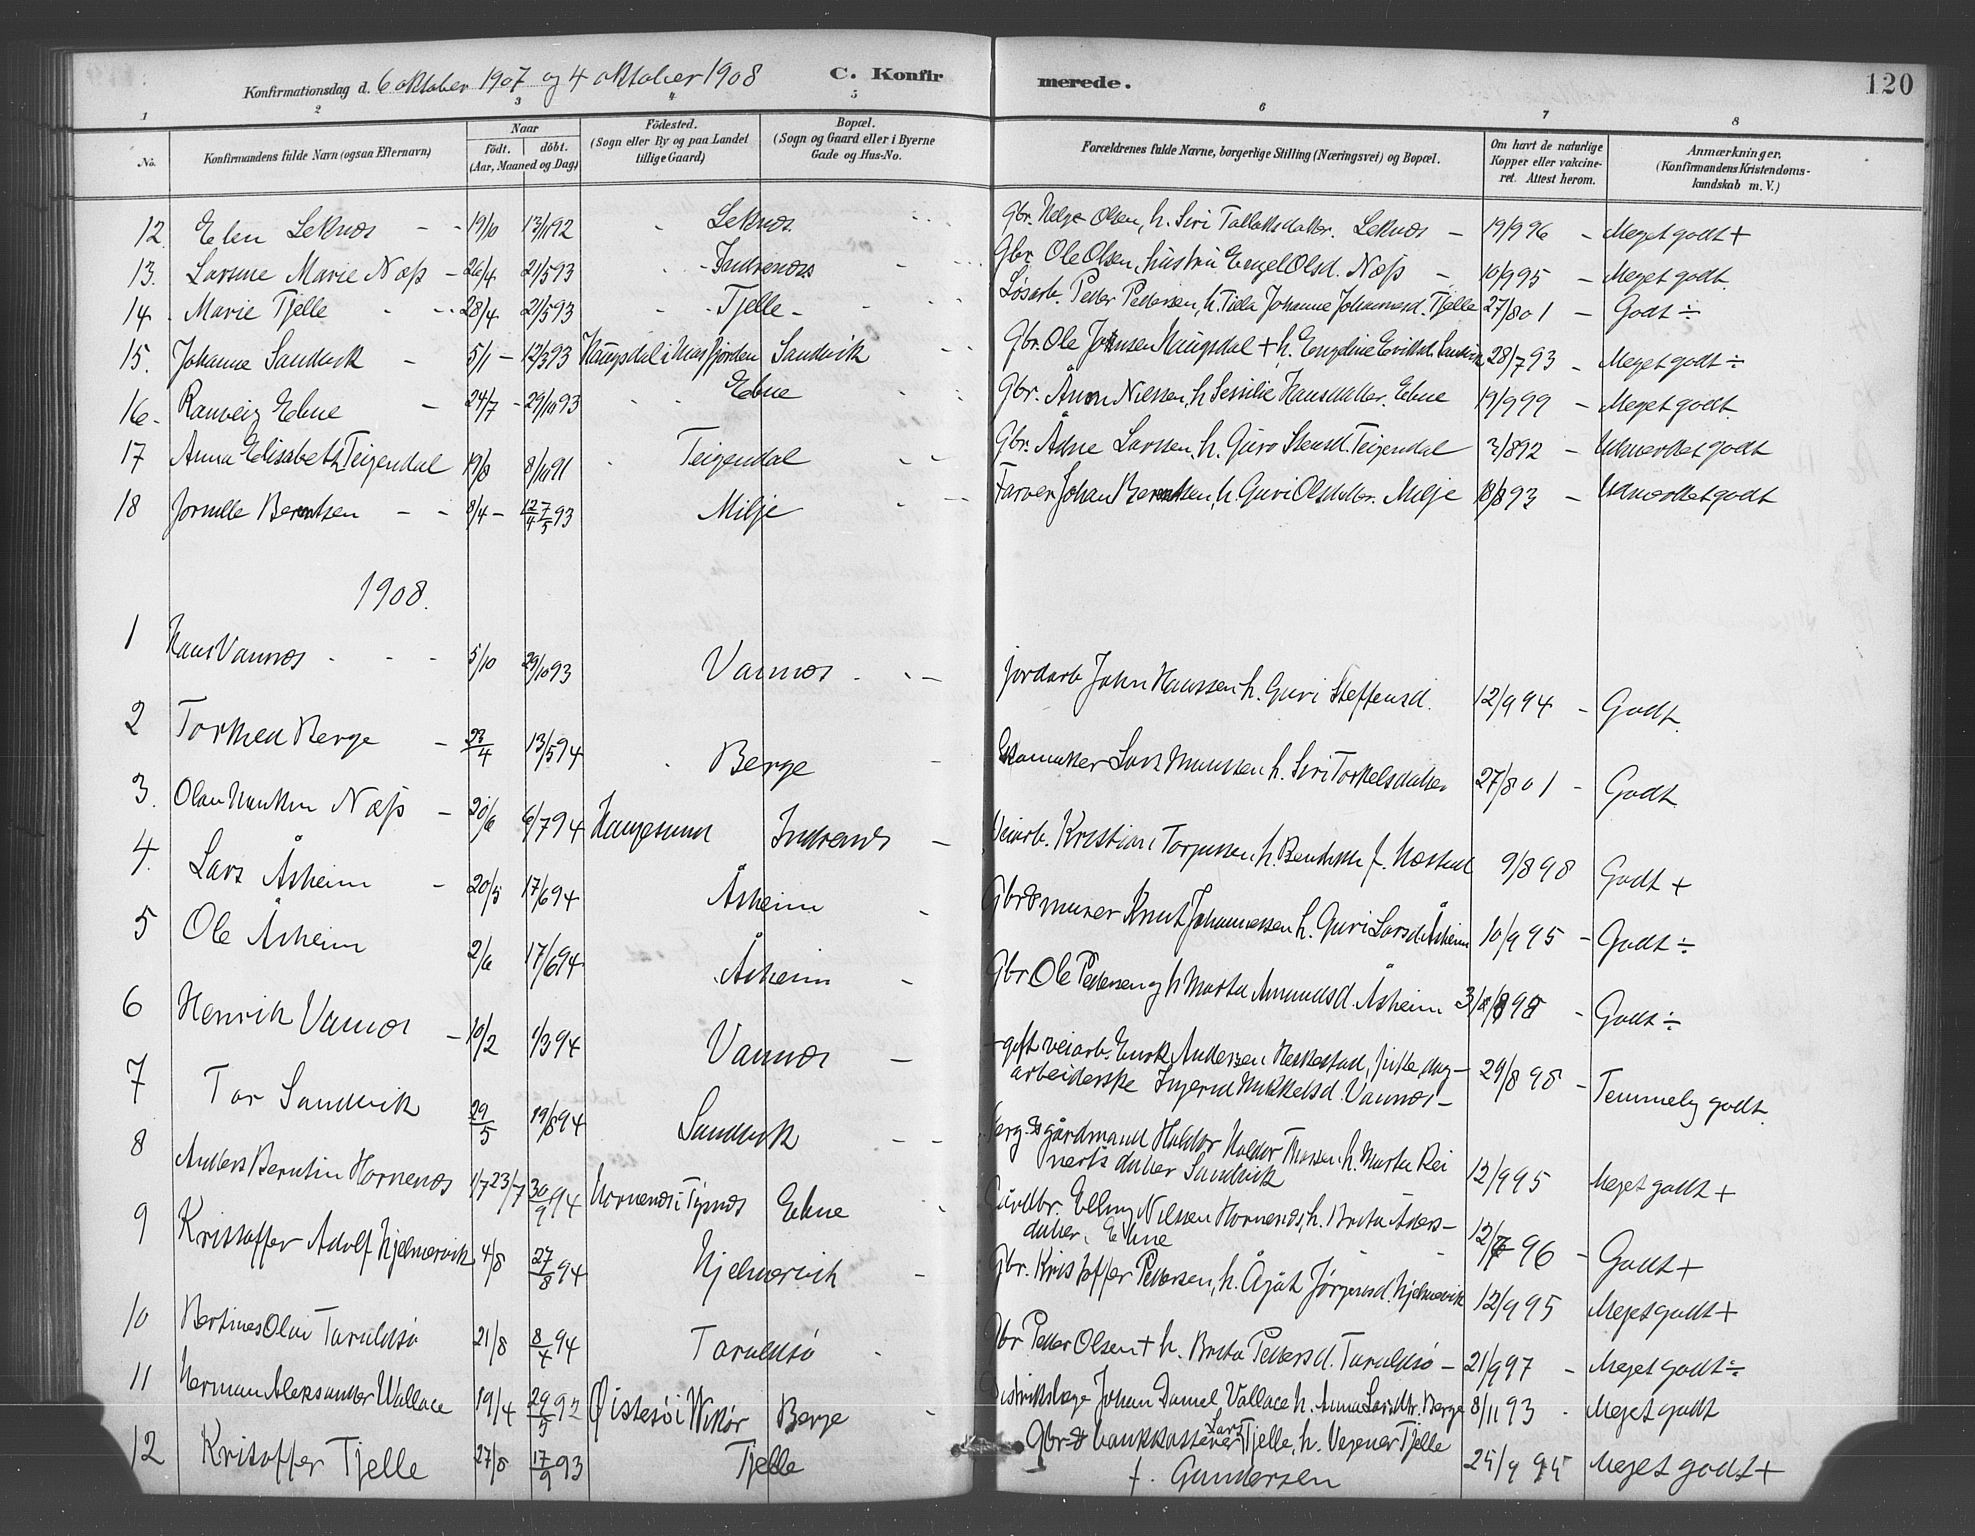 Konfirmationsdag d. 6 oktober 1907 og 4 oktober 1908 C. Konfirmerede. 120
1 2 3 4 5 6 7 8
No. Konfirmandens fulde Navn (ogsaa Efternavn) Naar födt. döbt. (Aar, Maaned og Dag) Födested. (Sogn eller By og paa Landet tillige Gaard) Bopæl. (Sogn og Gaard eller i Byerne Gade og Hus-No. Forældrenes fulde Navne, borgerlige Stilling (Næringsvei) og Bopæl. Om havt de naturlige Kopper eller vakcineret. Attest herom. Anmærkninger. (Konfirmandens Kristendomskundskab m. V.)
12. Elen Leknæs - - 19/10 13/11 92 Leknæs Gbr. Helge Olsen, h. Siri Tallaksdatter. Leknæs - 19/9 96 - Meget godt +
13. Larsine Marie Næss - 26/4 21/5 93 - Indrenæs Gbr. Ole Olsen, hustru Engel Olsd. Næss - 10/9 95 - Meget godt.
14. Marie Tjelle - - 28/4 21/5 93 - Tjelle - Løsarb. Peder Pedersen, h. Johanne Johannesd. Tjelle 27/8 01 - Godt ÷
15. Johanne Sandvik - 5/1 - 12/3 93 Haugsdal i Masfjorden Sandvik Gbr. Ole Johnsen Haugsdal + h. Engeline Eriksd. Sandvik 28/7 93 - Meget godt ÷
16. Ranveig Ebne - 24/7 - 29/10 93 Ebne Gbr. Åmon Nilssen, h. Sessilie Hansdatter. Ebne 19/9 99 - Meget godt
17 Anna Elisabeth Teigendal 19/9 8/11 91 Teigendal Gbr. Ådne Larssen, h. Guro Stensd. Teigendal 2/8 92 - Udmerket godt
18 Jornille Berntsen - - 8/4 - 12/4 7/5 93 Milje Farver Johan Berntsen, h. Guri Olsdatter. Milje 18/8 93 - Udmerket godt
1908.
1 Hans Vannes - - - 5/10 29/10 93 Vannes - - - jordarb John Hanssen h. Guri Steffensd. 12/9 94 - Godt.
2 Torkel Berge - 23/4 13/5 94 Berge - Skomakker Lars Monssen h. Siri Torkelsdatter 27/8 01 - Godt
3. Olav Næss - 20/6 6/7 94 Haugesund Indrenes - Veiarb. Kristian Torgersen h. f. Næstad 9/8 98 Godt +
4. Lars Åsheim - 20/5 17/6 94 Åsheim - Gbr & murer Knut Johannessen h. Guri Larsd Åsheim 10/9 95 - Godt ÷
5 Ole Åsheim 2/6 17/6 94 Åsheim - Gbr Ole Pedersen og h Marta Amundsd. Åsheim 98 - Godt ÷
6 Henrik Vannes - 10/2 1/3 94 Vannes - gift veiarb. Eirik Andersen Heskestad, pike dag-
arbeiderske Ingerid Mikkelsd. Vannes - 29/8 98 - Temmelig godt.
7 Tor Sandvik 29/5 19/8 94 Sandvik - - gårdmand Haldor Haldor Thorsen h. Marta Rei
nertsdatter Sandvik 12/9 95 Meget godt +
8 Anders Berntin Hornenes 1/7 23/7 30/9 94 Hornenes i Tysnes Ebne Gårdbr. Elling Nilsen Hornenes, h. Brita Anders-
datter. Ebne 12/6 96 - Godt +
9 Kristoffer Adolf Hjelmervik 4/8 27/8 94 Hjelmervik - Gbr. Kristoffer Pettersen, h. Ågåt Jørgensd. Hjelmevik 12/9 95 Meget godt +
10 Bertines Olai Taraldsø 21/8 8/4 94 Taraldsø - Gbr Petter Olsen + h. Brita Pettersd. Taraldsø - 21/9 97 - Meget godt ÷
11 Herman Aleksander Wallace 19/4 29/5 92 Øistesø i Wikør Berge - Distriktslæge Johan Daniel Vallace h. Anna Larsdtr. Berge 8/11 93 - Meget godt
12 Kristoffer Tjelle 27/8 17/9 93 Tjelle Gbr & bankkasserer Lars Tjelle, h. Vegener Tjelle
f. Gundersen 25/9 95 Meget godt +